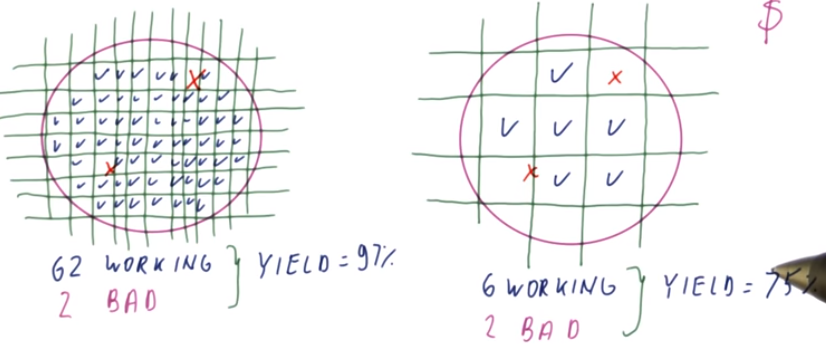 $
62 WORKING
2 BAD
YIELD = 97%
6 WORKING
2 BAD
YIELD = 75%